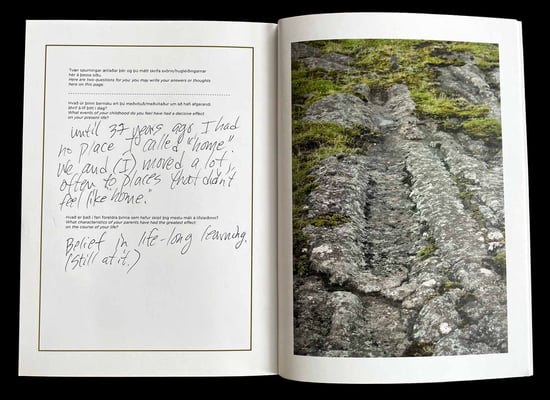 Tvær spurningar ætlaðar þér og þú mátt skrifa svörin/hugleiðingarnar
hér á þessa síðu.
Here are two questions for you: you may write your answers or thoughts
here on this page.
Hvað úr þinni bernsku ert þú meðvituð/meðvitaður um að hafi afgerandi
áhrif á líf þitt í dag?
What events of your childhood do you feel have had a decisive effect
on your present life?
Until 37 years ago, I had
no place I called "home".
We and (I) moved a lot,
often to places that didn't
feel like "home."
Hvað er það í fari foreldra þinna sem hefur skipt þig mestu máli á lífsleiðinni?
What characteristics of your parents have had the greatest effect
on the course of your life?
Belief in life-long learning.
(Still at it.)